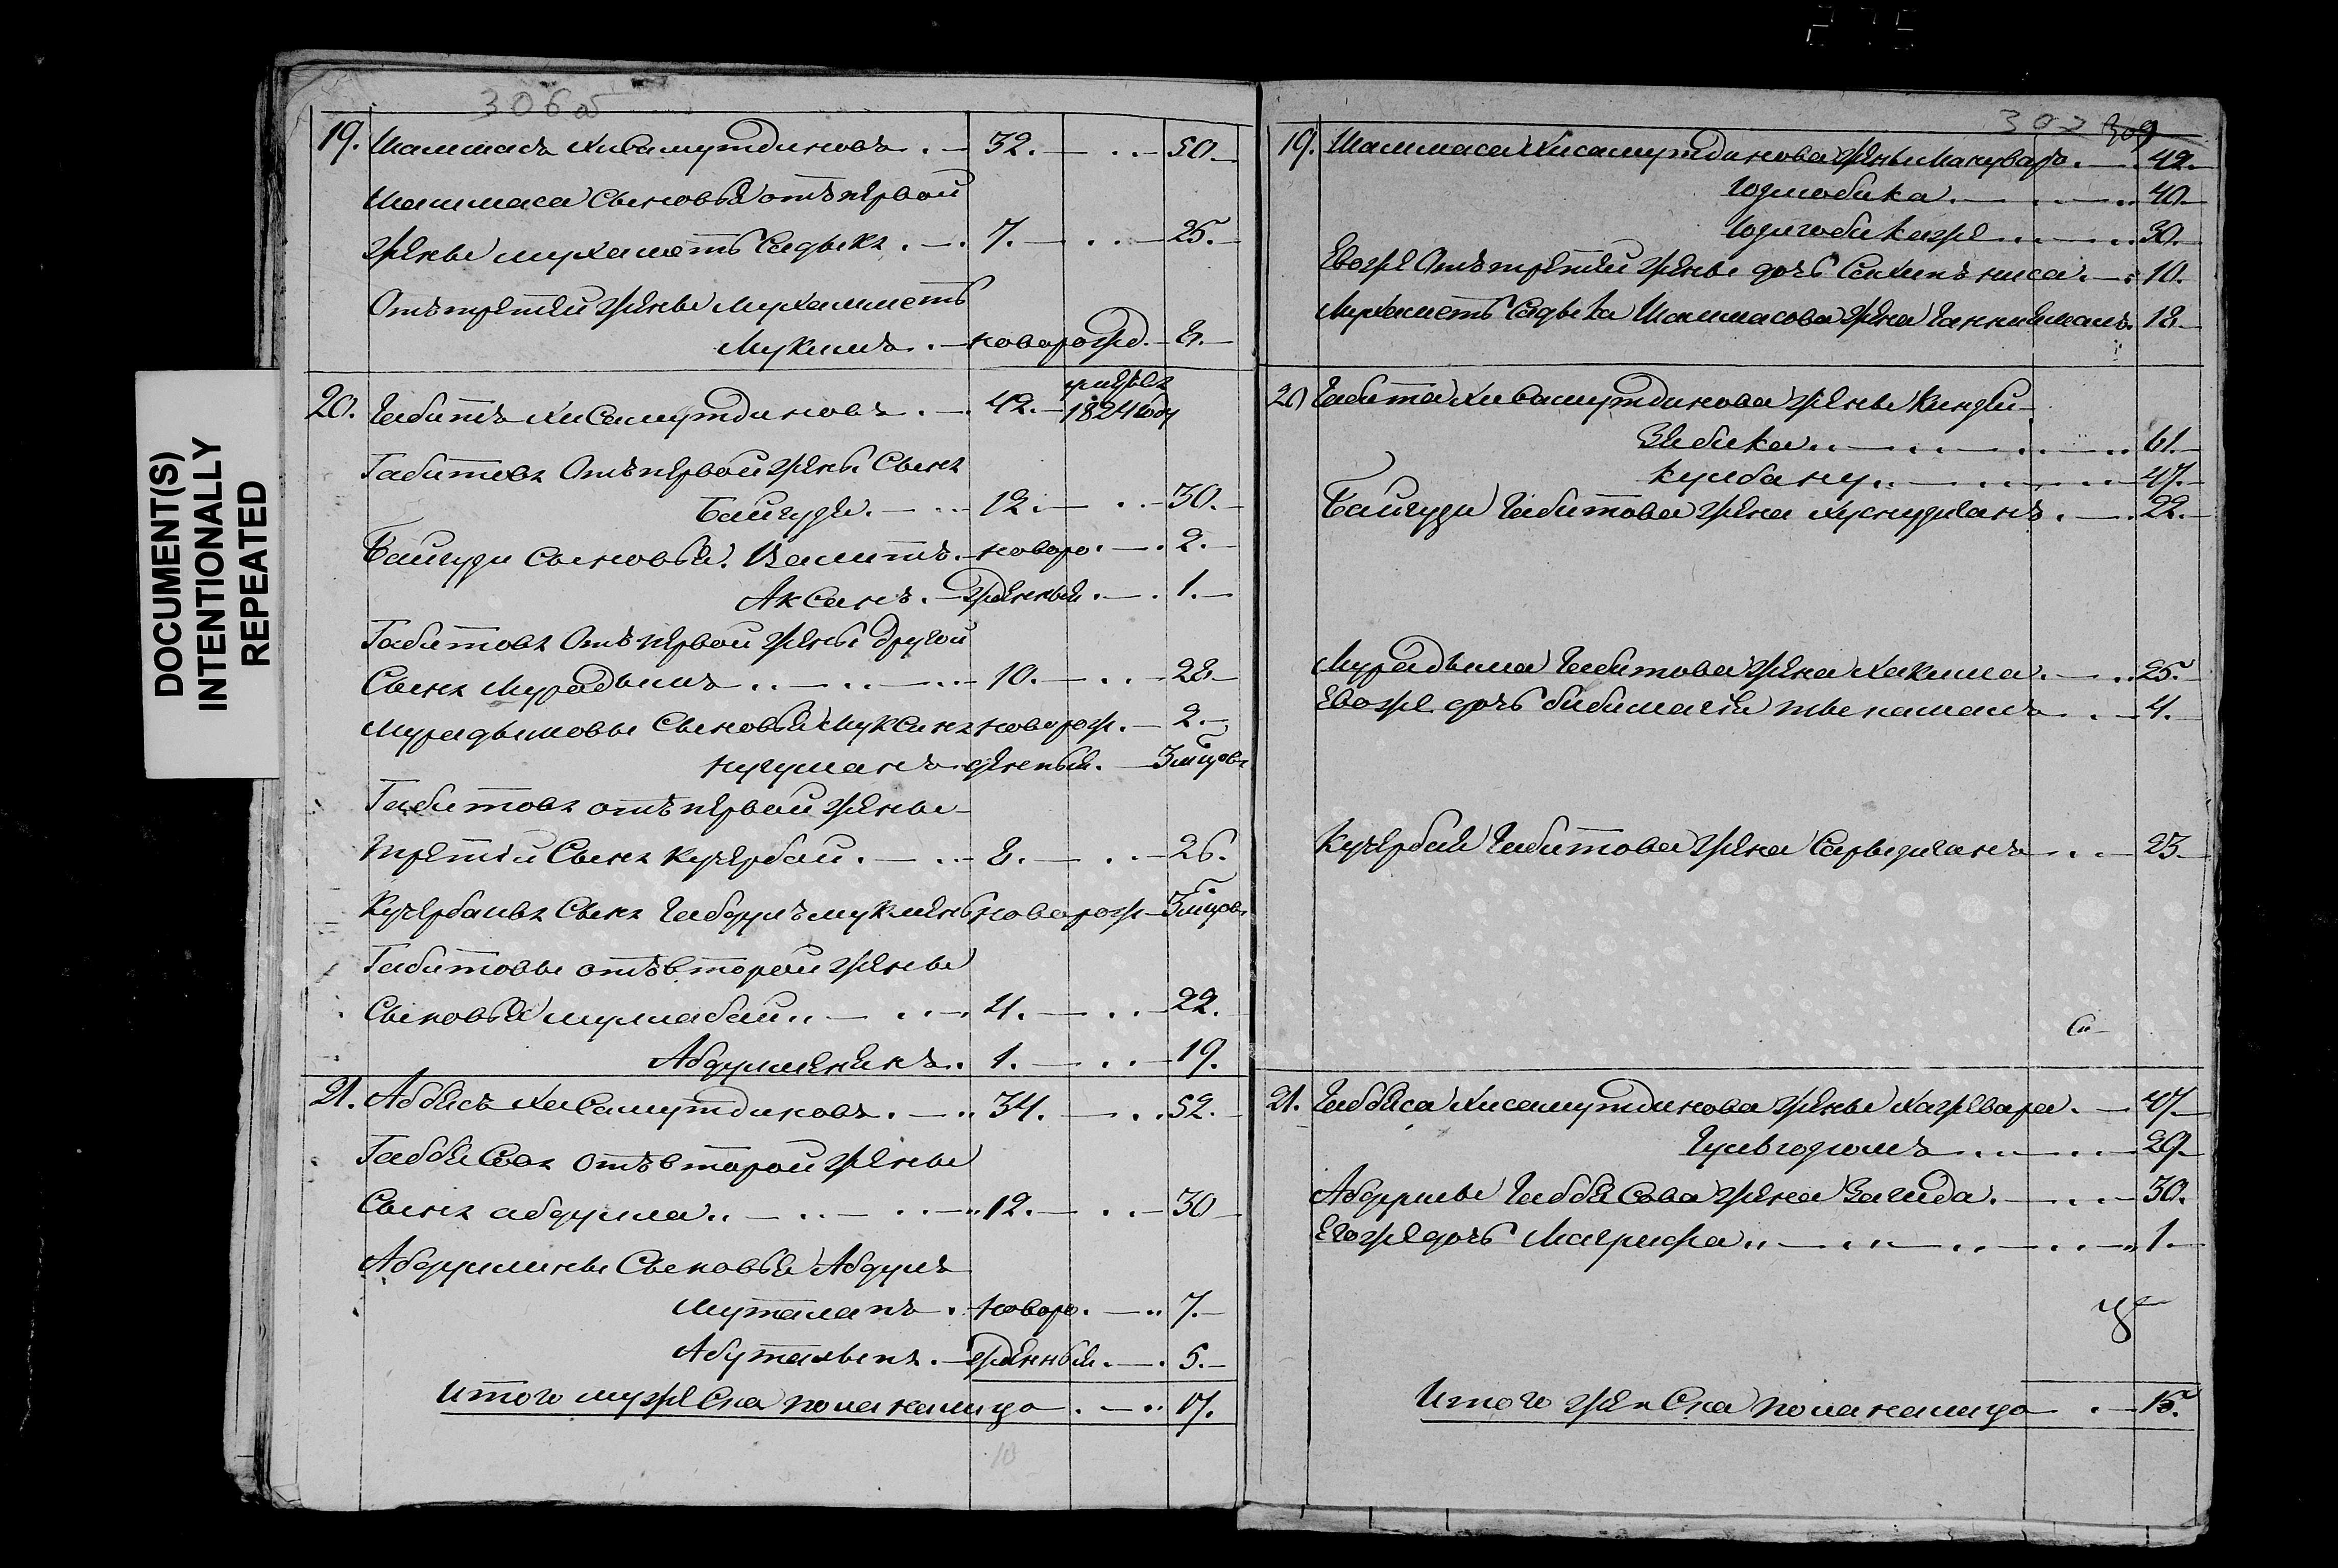 DOCUMENT(S)
INTENTIONALLY
REPEATED
306 об
19. Шаммасъ Хисамутдиновъ 32. 50.
Шаммаса Сыновья отъ первой
жены Мухаметъ Садыкъ 7. 25.
Отъ третей жены Мухамметъ
Мукимъ новорожд. 8.
20. Габитъ Хисамутдиновъ 42. умеръ въ 1824 году
Габитовъ Отъ первой жены Сынъ
Байгузя 12. 30.
Байгузи сыновья Вамитъ новоро 2.
Аксанъ жденныя 1.
Габитовъ Отъ первой жены другой
Сынъ Мурадымъ 10. 28
Мурадымовы Сыновья Муксинъ новорож. 2.
Нугуманъ денныя. 3 мцовъ
Габитовъ отъ первой жены
третій Сынъ Кучербай 8. 26.
Кучербаевъ Сынъ Габдулъ новорож 3 мцовъ
Габитовы отъ второй жены
Сыновья муллабай 4. 22.
Абдулменинъ 1. 19.
21. Аббясъ Хисамутдиновъ 34. 52.
Габбясовъ отъ второй жены
Сынъ абдулла 12. 30
Абдуллины Сыновья Абдулъ
Муталапъ новоро. 7.
Абуталыпъ жденныя. 5.
Итого мужеска пола налицо 17.
307 309
19. Шаммаса Хисамутдинова жены 42.
Юзмобика 40.
30.
Евоже Отъ третей жены дочь 10.
Мухаметъ Садыка Шаммасова жена 18
20 Габита Хисамутдинова жены
Зябика 61.
Кулбану 47.
Байгузи Габитова жена Хуснузганъ 22.
Мурадыма Габитова жена Хакима 25.
Евоже дочь 4.
Кучербая Габитова жена 23
21. Габбяса Хисамутдинова жены 47
29.
Абдуллы Габбясова жена Загида 30.
Егоже дочь Магрифа 1.
Итого женска пола налицо 15.